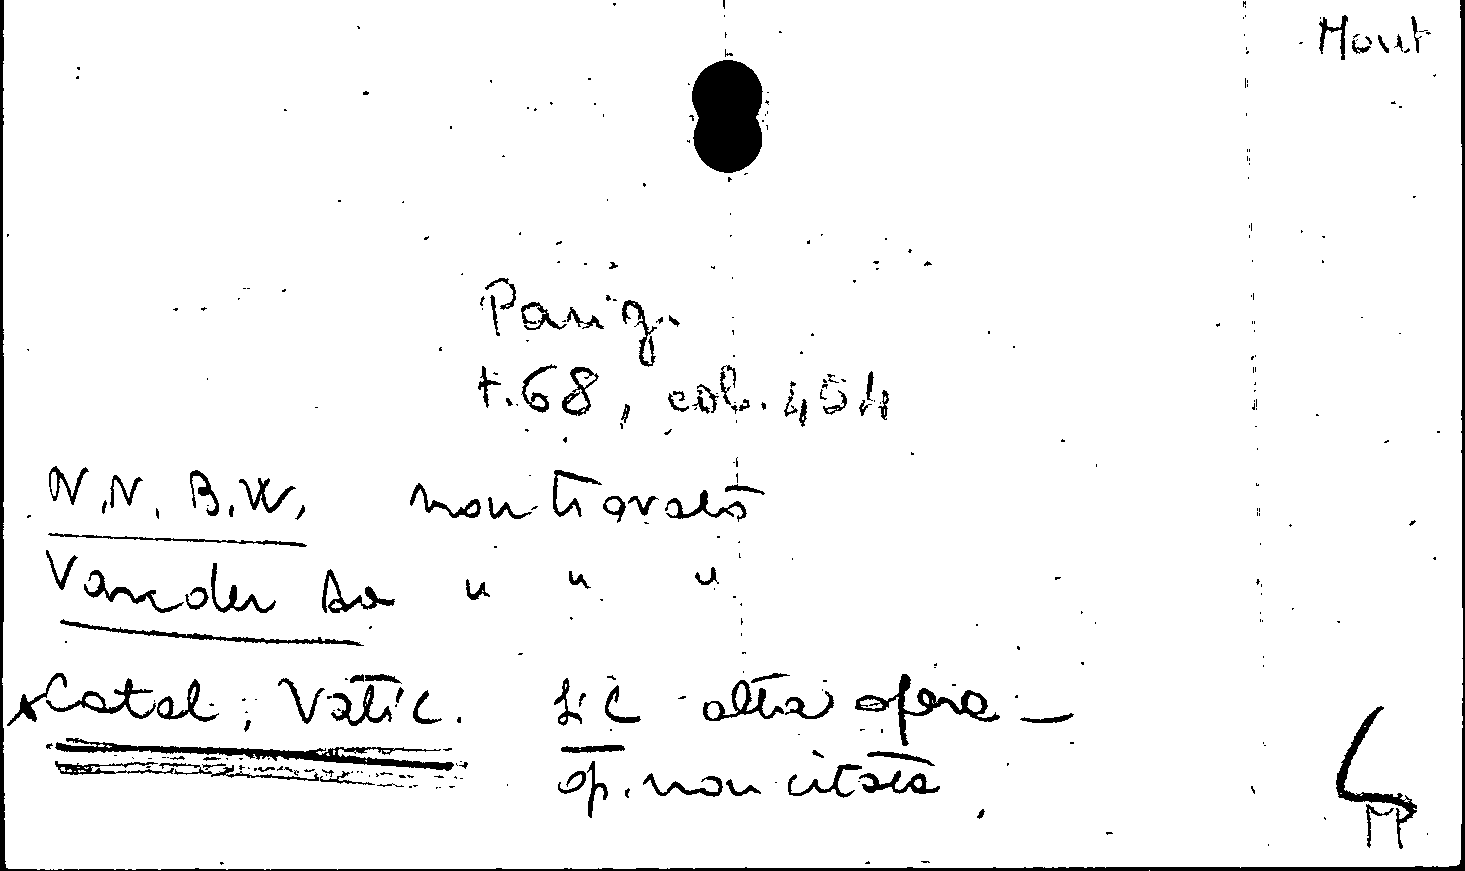 Mont
Parig.
t. 68, col. 454
N.N.B.W. non trovato
Vander Aa " " "
Catal. Vatic. sic altra opera –
op. non citata
M